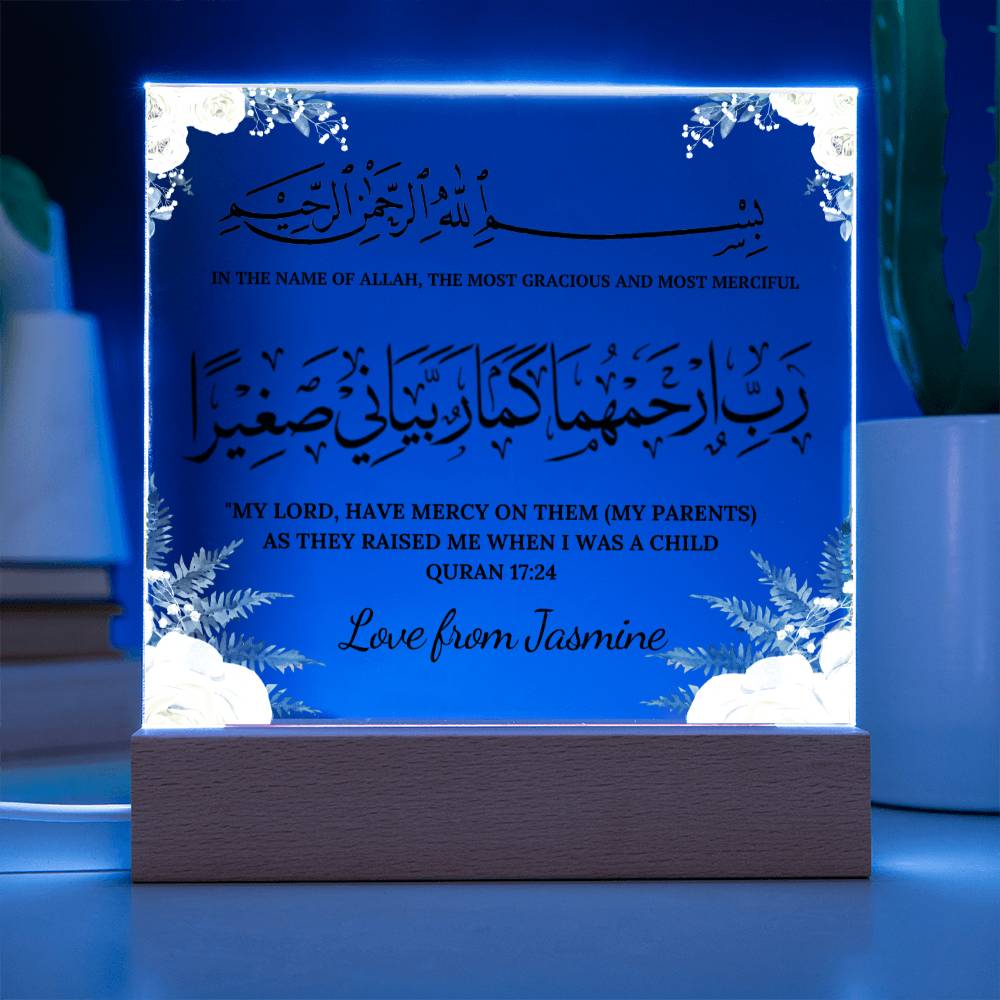 بِسْمِ ٱللَّٰهِ ٱلرَّحْمَٰنِ ٱلرَّحِيمِ
IN THE NAME OF ALLAH, THE MOST GRACIOUS AND MOST MERCIFUL
رَبِّ ارْحَمْهُمَا كَمَا رَبَّيَانِي صَغِيرًا
"MY LORD, HAVE MERCY ON THEM (MY PARENTS)
AS THEY RAISED ME WHEN I WAS A CHILD
QURAN 17:24
Love from Jasmine